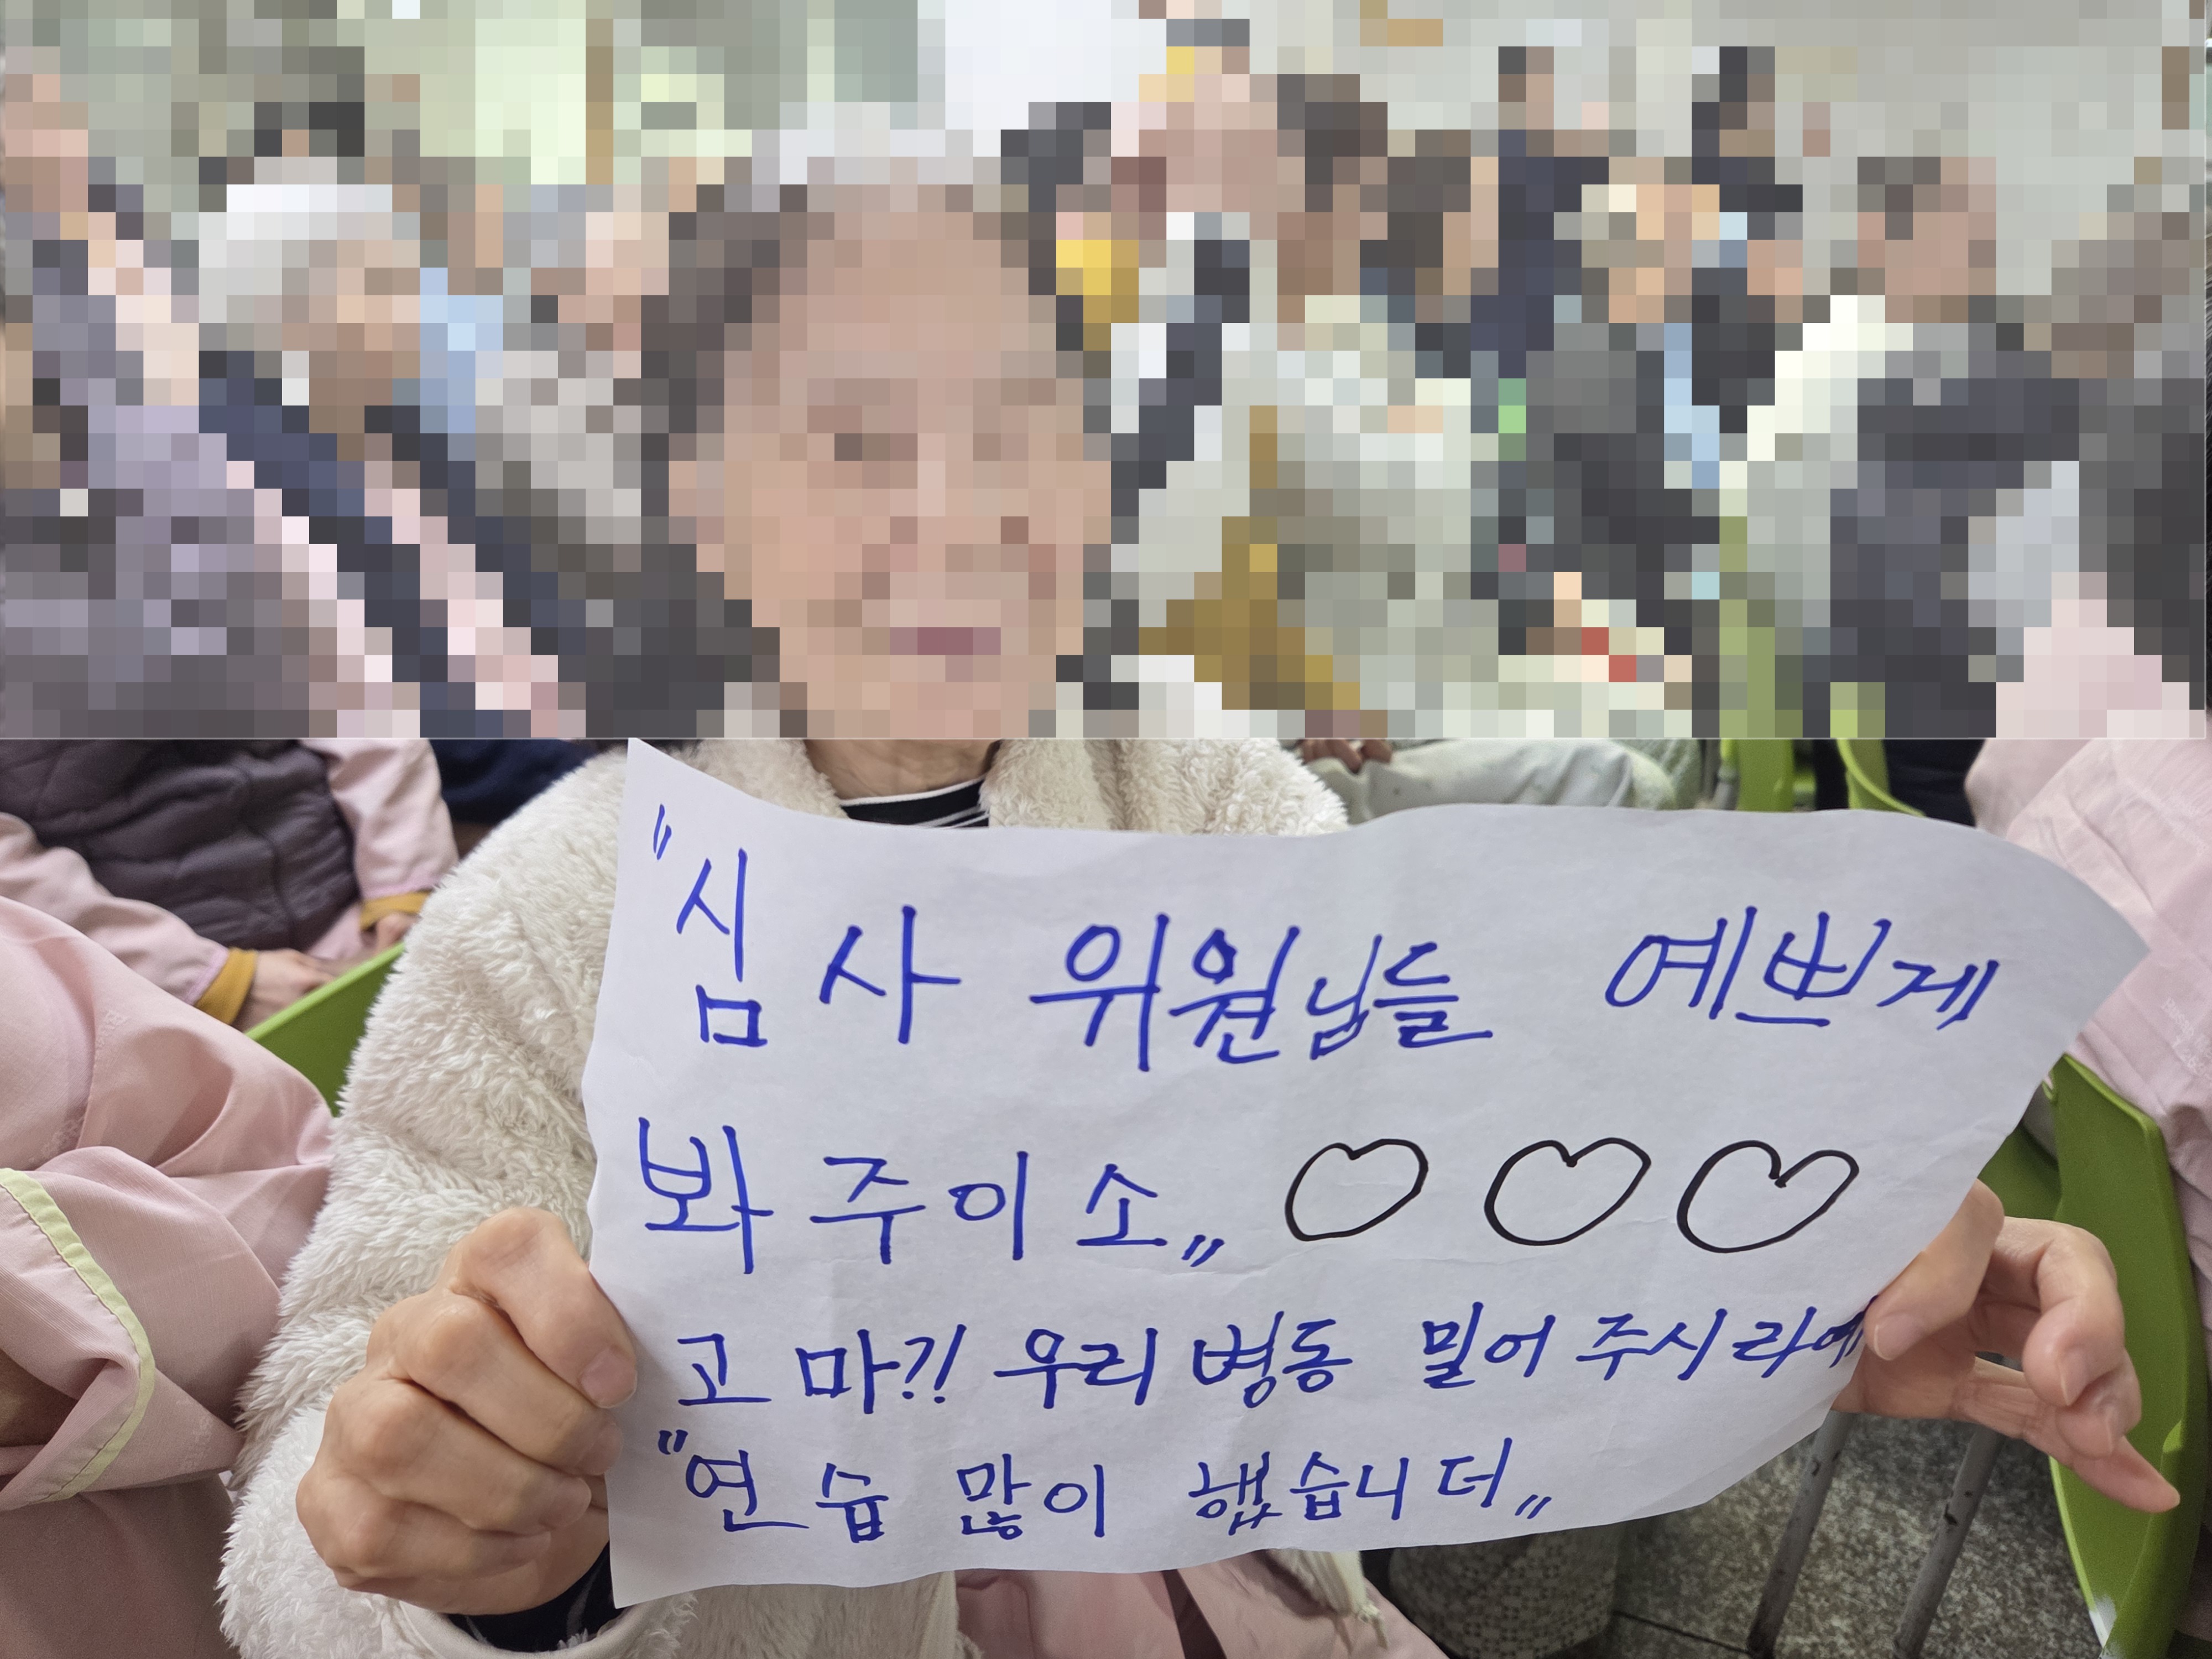 "심사 위원님들 예쁘게
봐주이소" ♡♡♡
고마?! 우리 병동 밀어주시라예
"연습 많이 했습니더"